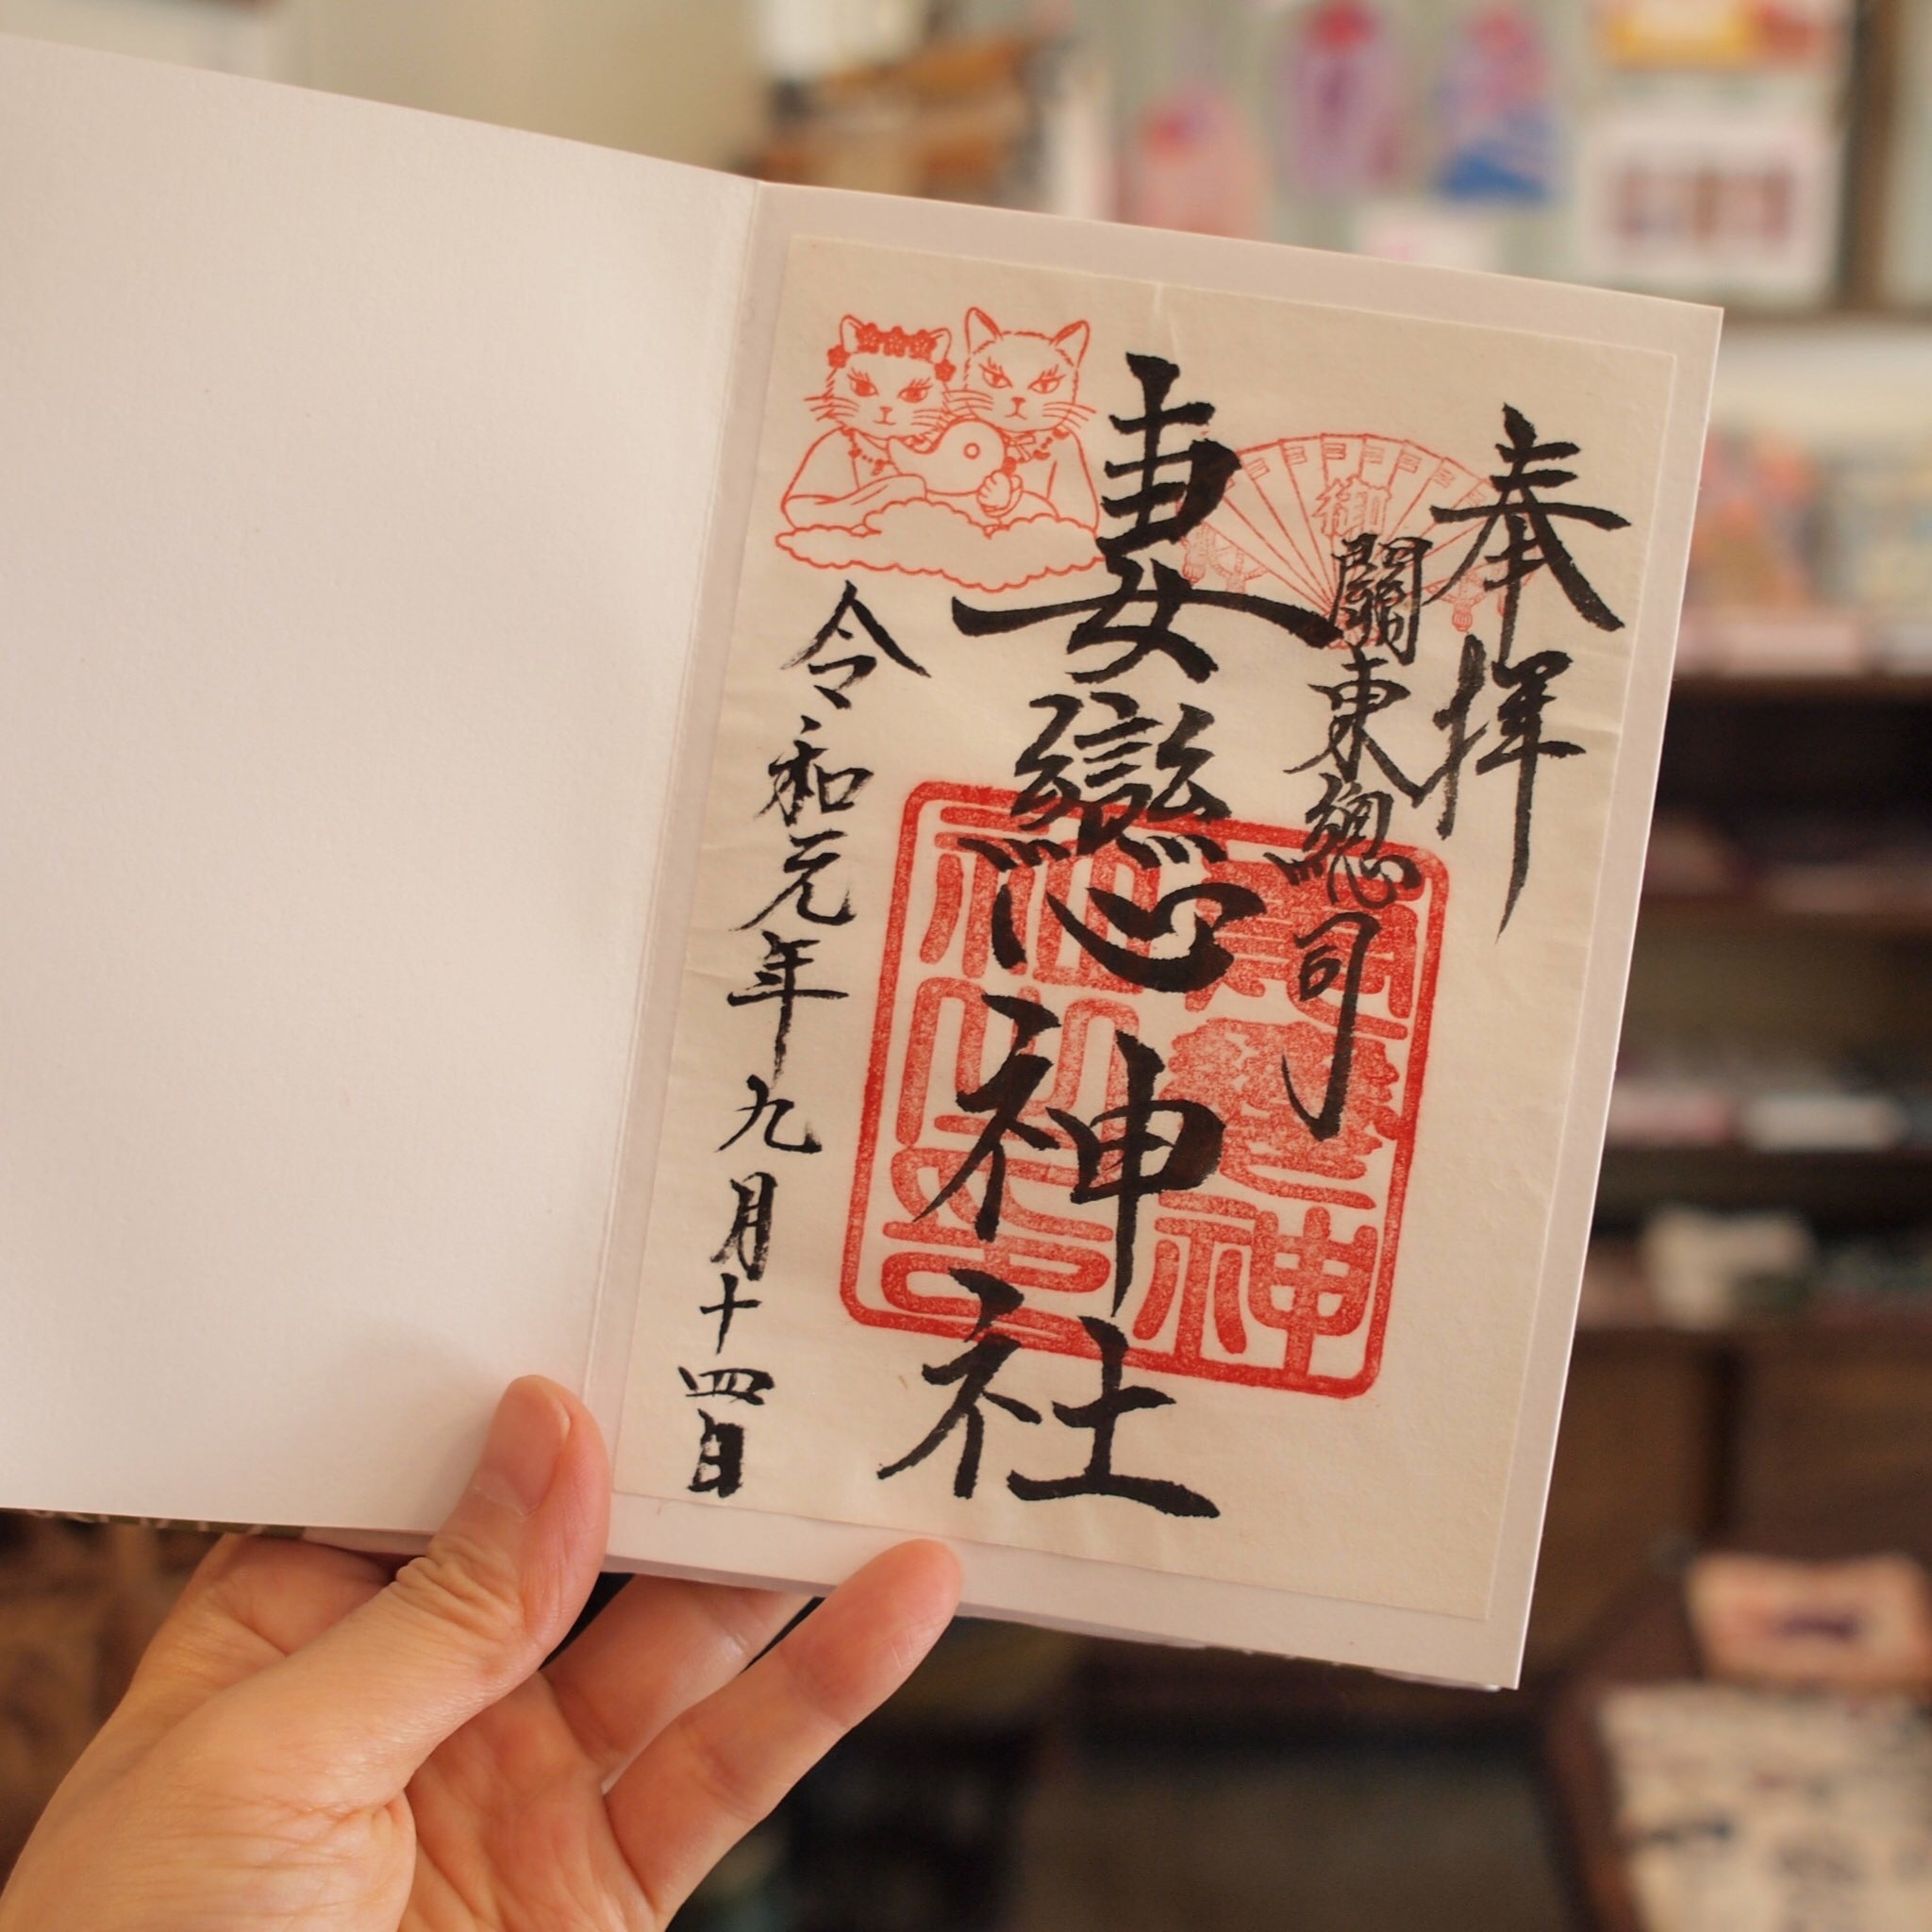 奉拝
關東總司
御
妻戀神社
令和元年九月十四日